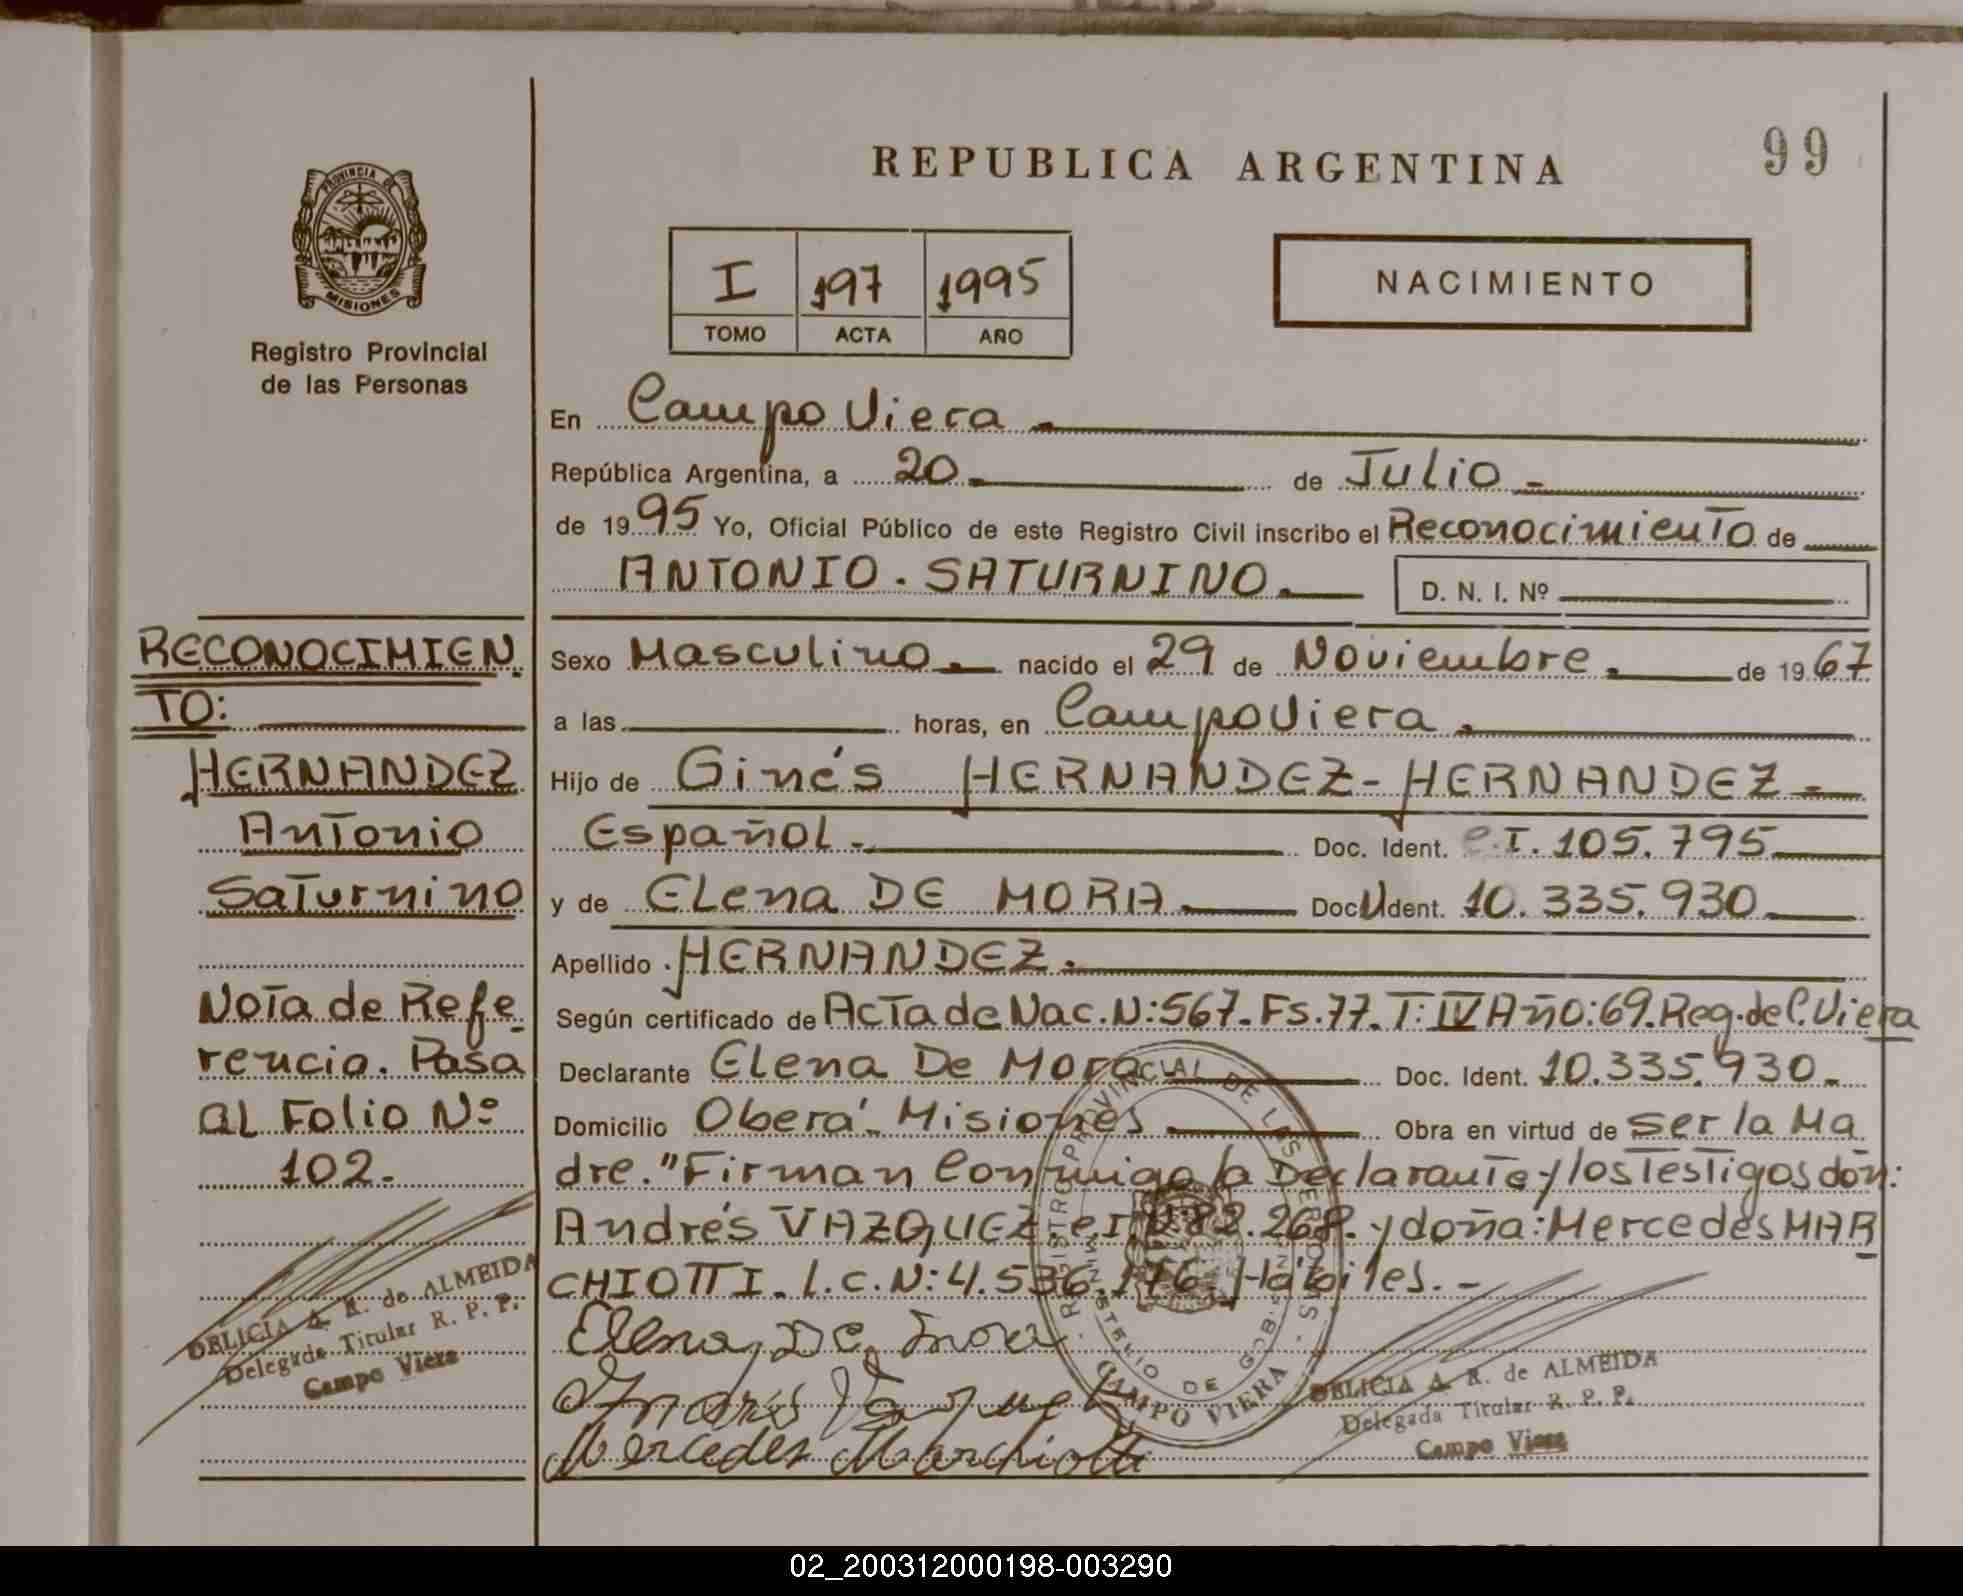 REPUBLICA ARGENTINA
99
PROVINCIA DE
MISIONES
Registro Provincial
de las Personas
I 197 1995
TOMO ACTA AÑO
NACIMIENTO
En Campo Viera
República Argentina, a 20 de Julio
de 1995 Yo, Oficial Público de este Registro Civil inscribo el Reconocimiento de
ANTONIO. SATURNINO.
D. N. I. Nº
Sexo Masculino. nacido el 29 de Noviembre. de 1967
a las horas, en Campo Viera.
Hijo de Ginés HERNANDEZ-HERNANDEZ-
Español. Doc. Ident. C.I. 105.795
y de Elena DE MORA Doc. Ident. 10.335.930
Apellido HERNANDEZ.
Según certificado de Acta de Nac. N:567. Fs.77. T:IV Año:69. Reg. de C. Viera
Declarante Elena De Mora Doc. Ident. 10.335.930.
Domicilio Oberá-Misiones Obra en virtud de ser la Ma
dre. "Firman Conmigo la Declarante y los Testigos don:
Andrés VAZQUEZ. C.I. 282.268. y doña: Mercedes MAR
CHIOTTI. L.C.N: 4.536.176. Hábiles. -
Elena De Mora
Andrés Vazquez
Mercedes Marchiotti
RECONOCIMIEN
TO:
HERNANDEZ
Antonio
Saturnino
Nota de Refe
rencia. Pasa
al Folio Nº
102.
DELICIA A. R. de ALMEIDA
Delegada Titular R. P. P.
Campo Viera
REGISTRO PROVINCIAL DE LAS PERSONAS
MINISTERIO DE GOBIERNO
CAMPO VIERA
DELICIA A. R. de ALMEIDA
Delegada Titular R. P. P.
Campo Viera
02_200312000198-003290